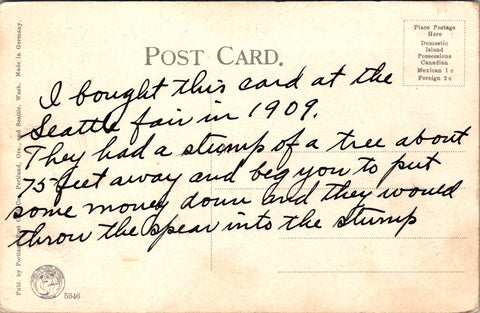 Place Postage
Here
Domestic
Island
Possessions
Canadian
Mexican 1 c
Foreign 2 c
POST CARD.
I bought this card at the
Seattle fair in 1909.
They had a stump of a tree about
75 feet away and beg you to put
some money down and they would
throw the spear into the stump
Publ. by Portland Post Card Co., Portland, Ore., and Seattle, Wash. Made in Germany.
5346